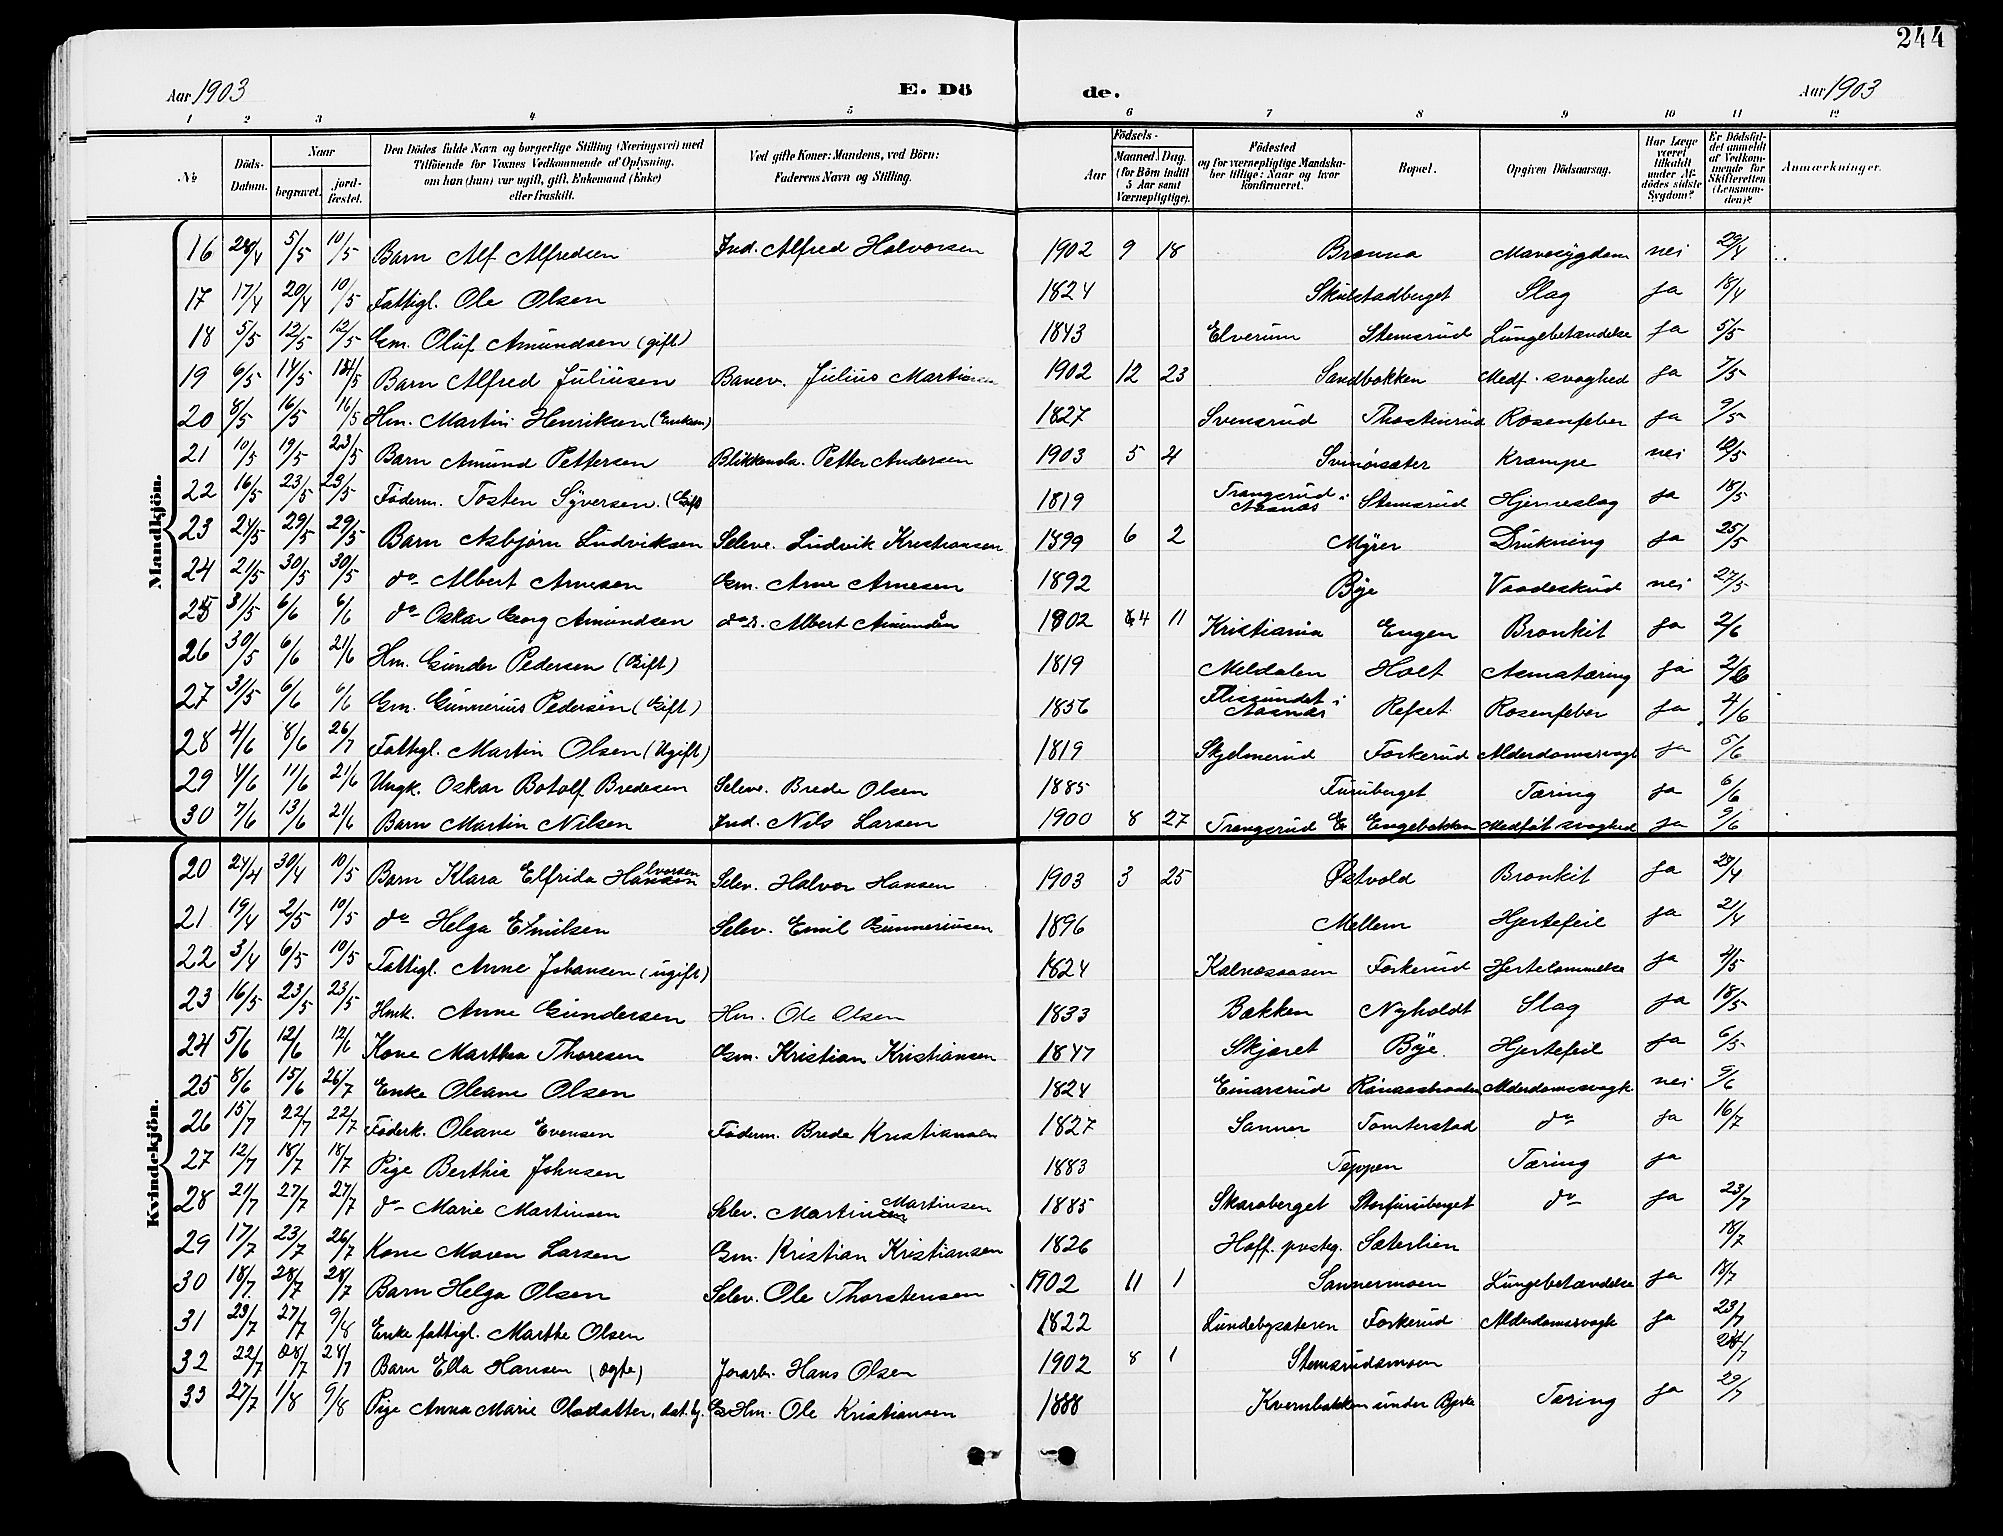 244
Aar 1903 E. Dö de. Aar 1903
1 2 3 4 5 6 7 8 9 10 11 12
№ Döds-Datum. Naar begravet. jord-fæstet. Den Dödes fulde Navn og borgerlige Stilling (Næringsvei) med Tilföiende for Voxnes Vedkommende af Oplysning, om han (hun) var ugift, gift, Enkemand (Enke) eller fraskilt. Ved gifte Koner: Mandens, ved Börn: Faderens Navn og Stilling. Födsels- Aar Maaned. Dag. (for Börn indtil 5 Aar samt Værnepligtige). Födested og for værnepligtige Mandskaber tillige: Naar og hvor konfirmeret. Bopæl. Opgiven Dödsaarsag. Har Læge været tilkaldt under Afdödes sidste Sygdom? Er Dödsfaldet anmeldt af Vedkommende for Skifteretten (Lensmanden)? Anmærkninger.
Mandkjön.
16 28/4 5/5 10/5 Barn Alf Alfredsen Ind. Alfred Halvorsen 1902 9 18 Branna Mavesygdom nei 29/4
17 17/4 20/4 10/5 Fattigl. Ole Olsen 1824 Skulstadberget Slag ja 18/4
18 5/5 12/5 12/5 Gm. Oluf Amundsen (gift) 1843 Elverum Stemsrud Lungebetændelse ja 5/5
19 6/5 14/5 14/5 Barn Alfred Juliusen Banev. Julius Martinsen 1902 12 23 Sandbakken Medf. svaghed ja 7/5
20 8/5 16/5 16/5 Hm. Martin Henriksen (Enkem) 1827 Svensrud Thostinrud Rosenfeber ja 9/5
21 10/5 19/5 23/5 Barn Amund Pettersen Blikkensl. Petter Andersen 1903 5 4 Svinøisæter Krampe nei 12/5
22 16/5 23/5 23/5 Föderm. Tosten Syversen. (Gift) 1819 Trangsrud i Aasnæs Stemsrud Hjerneslag ja 18/5
23 24/5 29/5 29/5 Barn Asbjørn Ludviksen Seleve. Ludvik Kristiansen 1899 6 2 Myrer Drukning ja 25/5
24 21/5 30/5 30/5 do Albert Arnesen Gm. Arne Arnesen 1892 Bye Vaadeskud nei 27/5
25 31/5 6/6 6/6 do Oskar Georg Amundsen do s. Albert Amundsen 1902 4 11 Kristiania Engen Bronkit ja 2/6
26 30/5 6/6 21/6 Hm. Gunder Pedersen (Gift) 1819 Meldalen Holt Asmatæring ja 2/6
27 31/5 6/6 6/6 Gm. Gunnerius Pedersen (Gift) 1856 Flissundet i Aasnæs Refset Rosenfeber ja 4/6
28 4/6 8/6 26/7 Fattigl. Martin Olsen (Ugift) 1819 Skjelmerud Forkerud Alderdomssvagh ja 5/6
29 4/6 11/6 21/6 Ungk. Oskar Botolf Bredesen Seleve. Brede Olsen 1885 Furuberget Tæring ja 6/6
30 7/6 13/6 21/6 Barn Martin Nilsen Ind. Nils Larsen 1900 8 27 Trangsrud Engebakken Medfödt svaghed ja 9/6
Kvindekjön.
20 24/4 30/4 10/5 Barn Klara Elfrida Halvorsen Selev. Halvor Hansen 1903 3 25 Østvold Bronkit ja 29/4
21 19/4 2/5 10/5 do Helga Emilsen Selev. Emil Gunneriusen 1896 Mellem Hjertefeil ja 21/4
22 3/4 6/5 10/5 Fattigl. Anne Johansen (ugift) 1824 Kalnæsaasen Forkerud Hjertelammelse ja 4/5
23 16/5 23/5 23/5 Hmk. Anne Gundersen Hm. Ole Olsen 1833 Bakken Nyholdt Slag ja 18/5
24 5/6 12/6 12/6 Kone Marthea Thoresen Gm. Kristian Kristiansen 1847 Skjæret Bye. Hjertefeil ja 6/5
25 8/6 15/6 26/7 Enke Oleane Olsen 1824 Einarsrud Alderdomssvagh nei 9/6
26 15/7 22/7 22/7 Föderk. Oleane Evensen Föderm. Brede Kristiansen 1827 Sanner Tomterstad do ja 16/7
27 12/7 18/7 18/7 Pige Berthia Johnsen 1883 Teppen Tæring ja
28 21/7 27/7 27/7 do Marie Martinsen Selev. Martin Martinsen 1885 Skaraberget Storfuruberget do ja 23/7
29 17/7 23/7 26/7 Kone Maren Larsen Gm. Kristian Kristiansen 1826 Hoff. prestg. Sæterlien 18/7
30 18/7 28/7 28/7 Barn Helga Olsen Selev. Ole Thorstensen 1902 11 1 Sannermoen Lungebetændelse ja 18/7
31 23/7 27/7 9/8 Enke fattigl. Marthe Olsen 1822 Lundebysæteren Forkerud Alderdomssvagh ja 23/7
32 22/7 28/7 28/7 Barn Ella Hansen (ægte) Jorarb. Hans Olsen 1902 8 1 Stemsrudsmoen 24/7
33 27/7 1/8 9/8 Pige Anna Marie Olsdatter, dat. Hm. Ole Kristiansen 1888 Kvernbakken under Bjerke Tæring ja 29/7